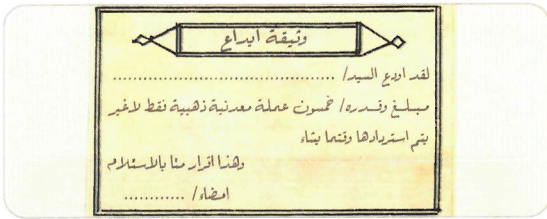 وثيقة ايداع
لقد اودع السيد/ ............................................
مبلغ وقدره/ خمسون عملة معدنية ذهبية فقط لاغير
يتم استردادها وقتما يشاء
وهذا اقرار منا بالاستلام
امضاء/ ............